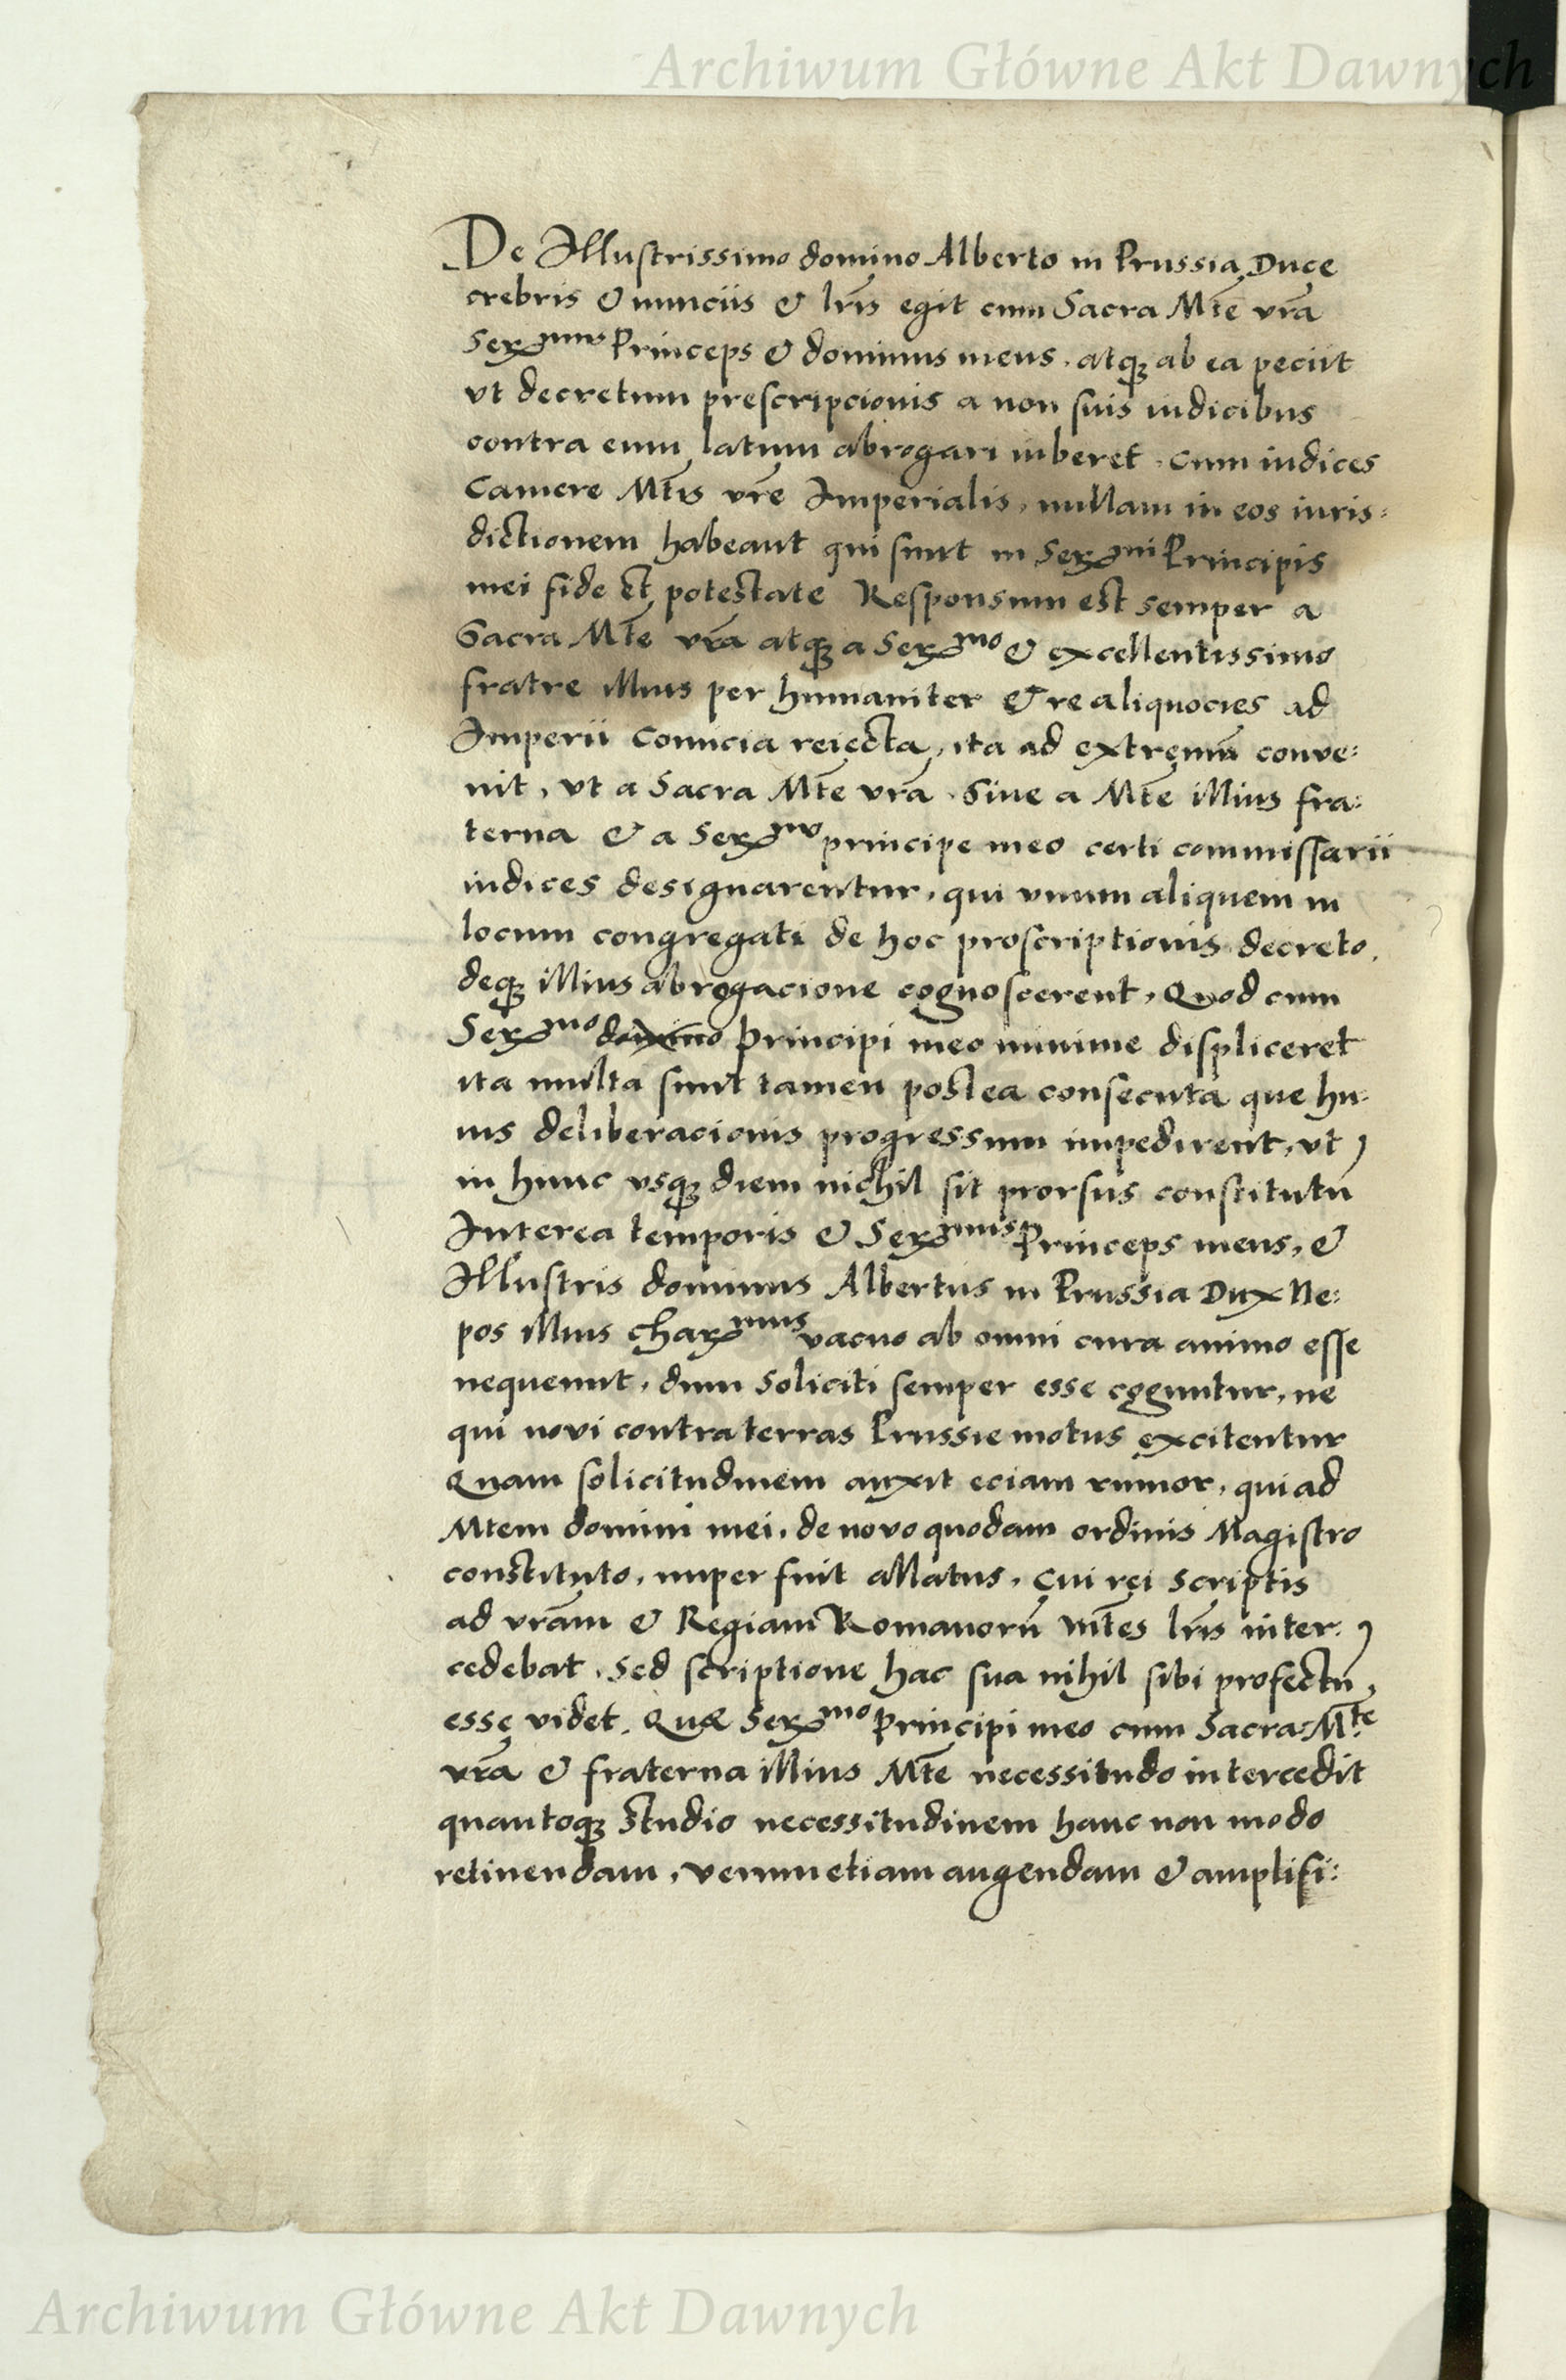 Archiwum Główne Akt Dawnych
De Illustrissimo domino Alberto in Prussia Duce
crebris & nunciis & lr̃is egit cum Sacra Mte vrã
Serᵐᵘˢ Princeps & dominus meus. atqꝫ ab ea peciit
vt decretum prescripcionis a non suis iudicibus
contra eum latum abrogari iuberet. cum iudices
Camere Mtis vrẽ Imperialis, nullam in eos iuris:
dictionem habeant qui sunt in Serᵐⁱ Principis
mei fide et potestate Responsum est semper a
Sacra Mte vrã atqꝫ a Serᵐᵒ & excellentissimo
fratre illius per humaniter & re aliquocies ad
Imperii Comicia reiecta, ita ad extremũ conve:
nit, vt a Sacra Mte vrã. Sive a Mte illius fra:
terna & a Serᵐᵒ principe meo certi commissarii
iudices designarentur, qui vnum aliquem in
locum congregati de hoc proscriptionis decreto.
deqꝫ illius abrogacione cognoscerent, Quod cum
Serᵐᵒ domino Principi meo minime displiceret
ita multa sunt tamen postea consecuta que hu:
ius deliberacionis progressum impedirent, vt
in hunc vsqꝫ diem nichil sit prorsus constitutũ
Interea temporis & Serᵐᵘˢ Princeps meus, &
Illustris dominus Albertus in Prussia Dux Ne:
pos illius Charᵐᵘˢ vacuo ab omni cura animo esse
nequeunt, dum soliciti semper esse coguntur, ne
qui novi contra terras Prussie motus excitentur
Quam solicitudinem auxit eciam rumor, qui ad
Mtem domini mei, de novo quodam ordinis Magistro
constituto, nuper fuit allatus, Cui rei scriptis
ad vrãm & Regiam Romanorũ Mtes lr̃is inter:
cedebat. Sed scriptione hac sua nihil sibi profectũ
esse videt. Quæ Serᵐᵒ Principi meo cum Sacra Mᵗᵉ
vrã & fraterna illius Mte necessitudo intercedit
quantoqꝫ studio necessitudinem hanc non modo
retinendam, verum etiam augendam & amplifi:
Archiwum Główne Akt Dawnych